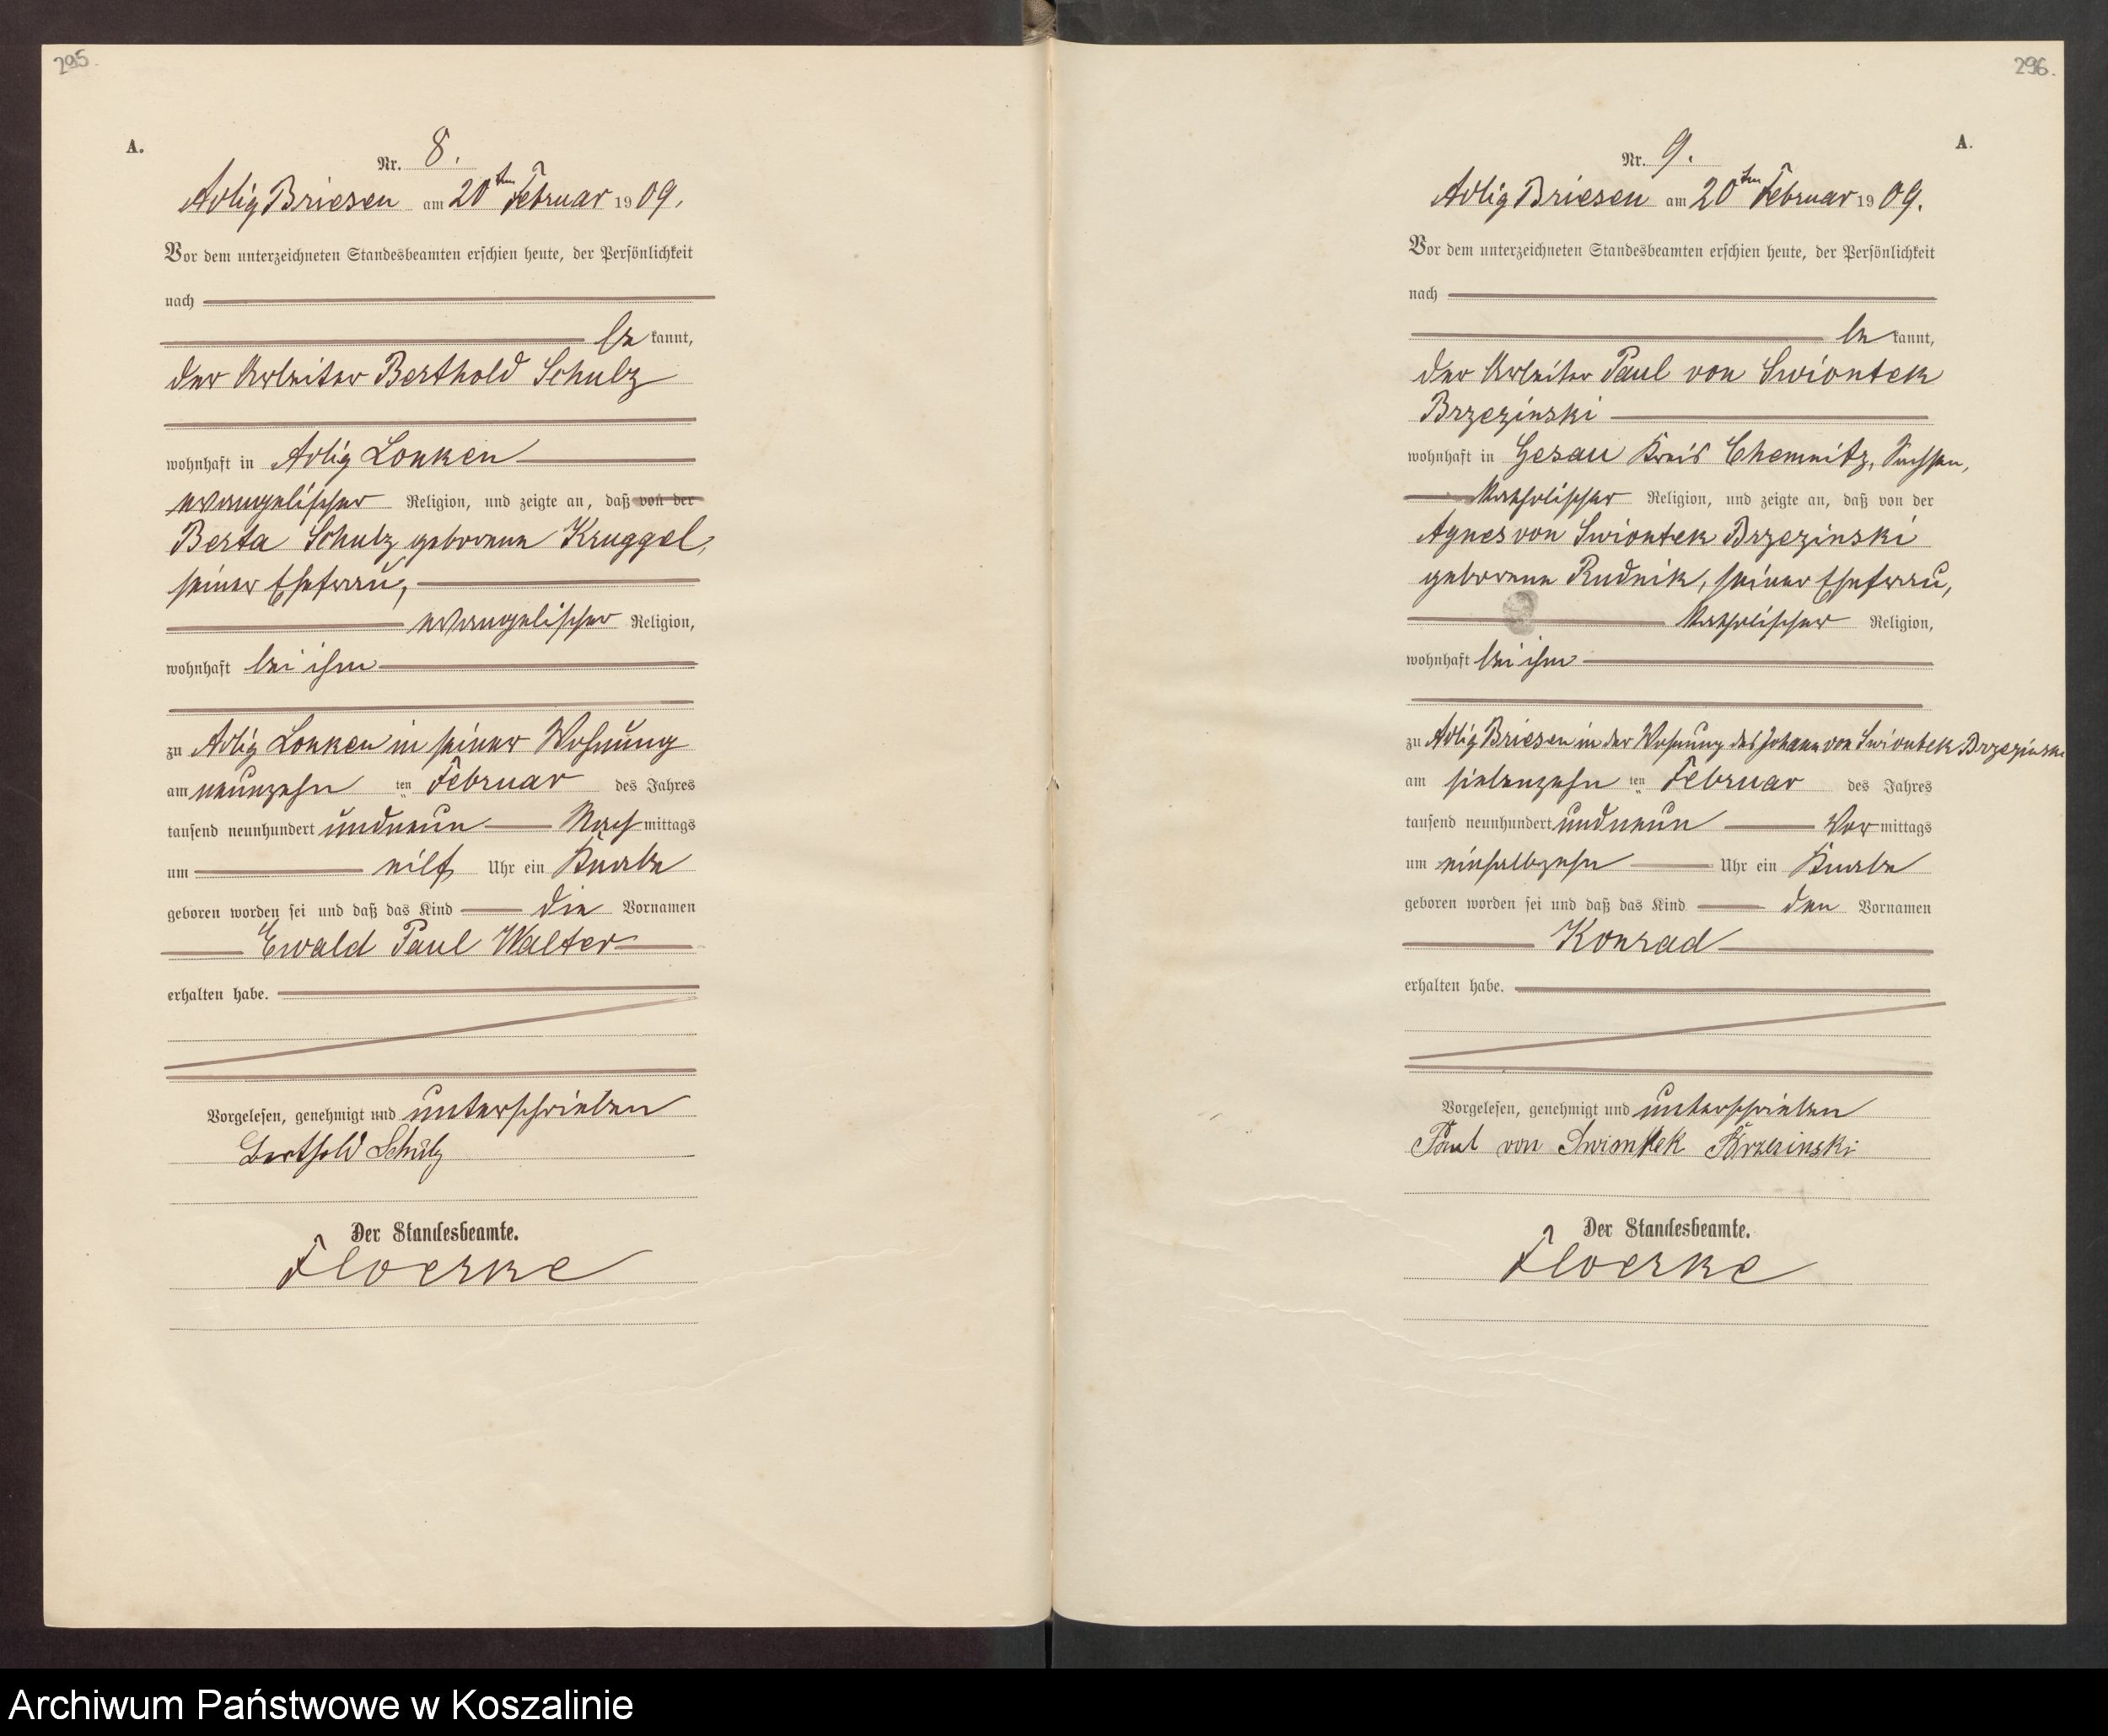 295.
A.
Nr. 8.
Adlig Briesen am 20ten Februar 1909.
Vor dem unterzeichneten Standesbeamten erschien heute, der Persönlichkeit
nach
be kannt,
der Arbeiter Berthold Schulz
wohnhaft in Adlig Lonken
evangelischer Religion, und zeigte an, daß von der
Berta Schulz geborene Kruggel,
seiner Ehefrau,
evangelischer Religion,
wohnhaft bei ihm
zu Adlig Lonken in seiner Wohnung
am neunzehn ten Februar des Jahres
tausend neunhundert undneun Nach mittags
um eilf Uhr ein Knabe
geboren worden sei und daß das Kind die Vornamen
Ewald Paul Walter
erhalten habe.
Vorgelesen, genehmigt und unterschrieben
Berthold Schulz
Der Standesbeamte.
Floerke
296.
A.
Nr. 9.
Adlig Briesen am 20ten Februar 1909.
Vor dem unterzeichneten Standesbeamten erschien heute, der Persönlichkeit
nach
be kannt,
der Arbeiter Paul von Swiontek
Brzezinski
wohnhaft in Gesau Kreis Chemnitz, Sachsen,
katholischer Religion, und zeigte an, daß von der
Agnes von Swiontek Brzezinski
geborene Rudnik, seiner Ehefrau,
katholischer Religion,
wohnhaft bei ihm
zu Adlig Briesen in der Wohnung des Johann von Swiontek Brzezinski
am siebenzehn ten Februar des Jahres
tausend neunhundert undneun Vor mittags
um einhalbzehn Uhr ein Knabe
geboren worden sei und daß das Kind den Vornamen
Konrad
erhalten habe.
Vorgelesen, genehmigt und unterschrieben
Paul von Swiontek Brzezinski
Der Standesbeamte.
Floerke
Archiwum Państwowe w Koszalinie